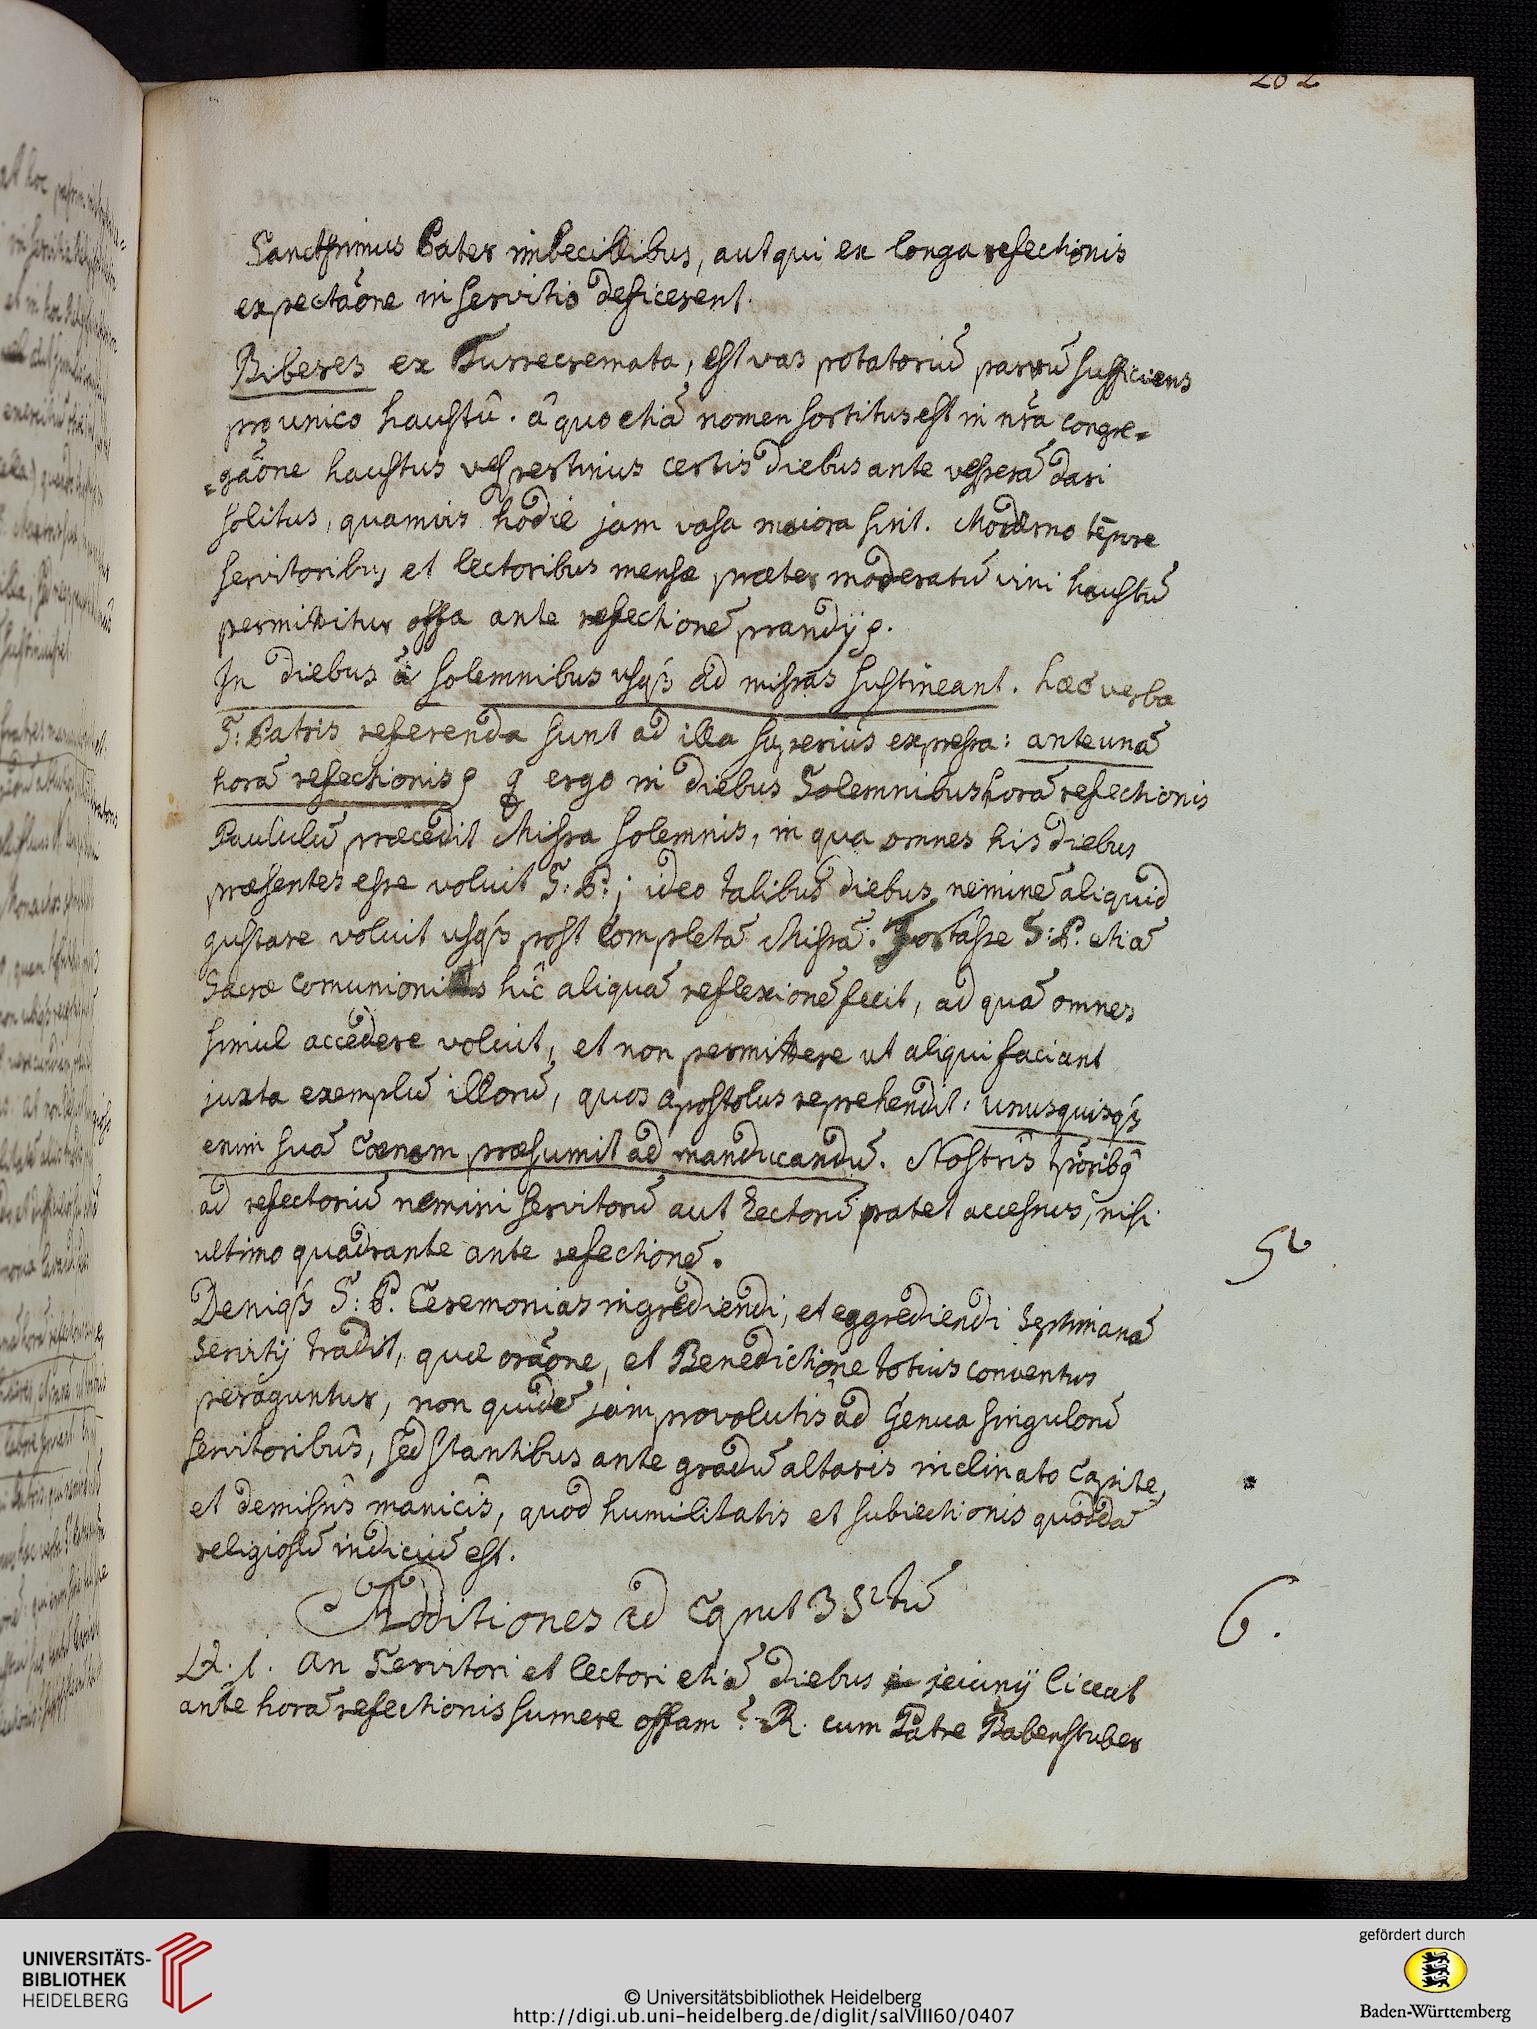 202
Sanctssimus Pater imbecillibus, aut qui ex longa refectionis
expectãone in servitio deficerent.
Biberes ex Turrecremata, est vas potatoriũ parvũ sufficiens
pro unico haustû. â quo etiã nomen sortitus est in nr̃a congre=
=gãone haustus vespertinus certis diebus ante vesperã dari
solitus, quamvis hodie jam vasa maiora sint. Moderno tẽpore
servitoribus et lectoribus mensæ præter moderatũ vini haustũ
permittitur offa ante refectionẽ prandij.
In diebus ã solemnibus usq́3 ad missas sustineant. hæc verba
S: Patris referenda sunt ad illa superius expressa: ante unã
horã refectionis q ergo in diebus Solemnibus horã refectionis
Paululũ præcedit Missa solemnis, in qua omnes his diebus
præsentes esse voluit S: P:; ideo talibus diebus neminẽ aliquid
gustare voluit usq́3 post completã Missã. Fortasse S: P. etiã
Sacræ comunionis hîc aliquã reflexionẽ fecit, ad quã omnes
simul accedere voluit, et non permittere ut aliqui faciant
juxta exemplũ illorũ, quos apostolus reprehendit: unusquisq́3
enim suã cœnam præsumit ad manducandũ. Nostrîs tp̃oribq̃
ad refectoriũ nemini servitorũ aut Lectorũ patet accessus, nisi
ultimo quadrante ante refectionẽ.
5
Deniq́3 S: P. Ceremonias ingrediendi, et eggrediendi Septimanã
servitij tradit, quæ orãone, et Benedictione totius conventus
peraguntur, non quidẽ jam provolutis ad Genua singulorũ
servitoribus, sed stantibus ante gradũ altaris inclinato capite,
et demissîs manicîs, quod humilitatis et subiectionis quoddã
religiosũ indiciũ est.
Additiones ad Caput 35tũ
6.
Q. 1. An Servitori et lectori etiã diebus jeiunij liceat
ante horã refectionis sumere offam? R. cum Patre Babenstuber
UNIVERSITÄTS-
BIBLIOTHEK
HEIDELBERG
© Universitätsbibliothek Heidelberg
http://digi.ub.uni-heidelberg.de/diglit/salVIII60/0407
gefördert durch
Baden-Württemberg